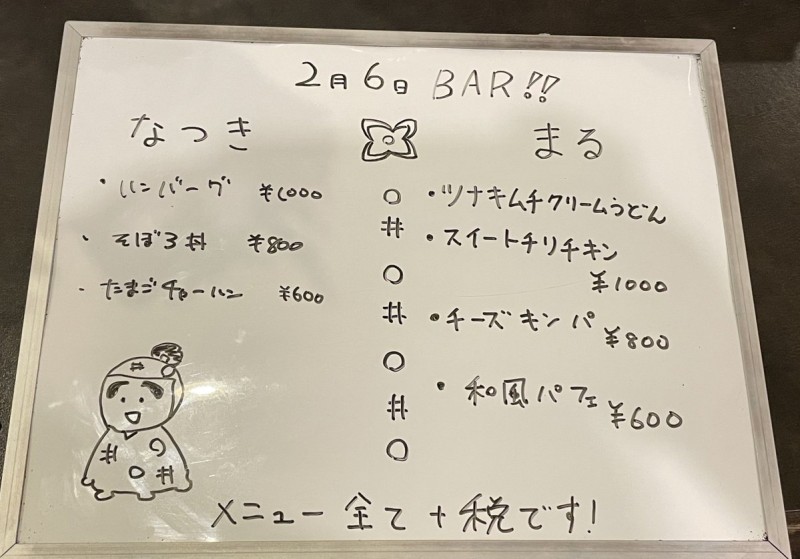 2月6日 BAR!!
なつき
・ハンバーグ ¥1000
・そぼろ丼 ¥800
・たまごチャーハン ¥600
まる
・ツナキムチクリームうどん
・スイートチリチキン
¥1000
・チーズキンパ ¥800
・和風パフェ ¥600
○
井
○
井
○
井
○
井 の
○ 井
メニュー全て+税です!